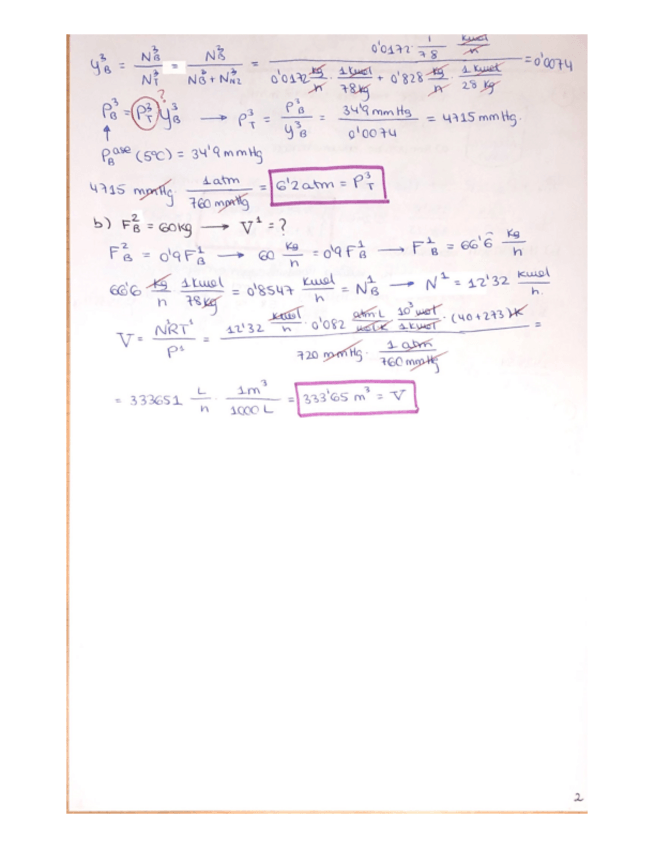 y³_B = N³_B / N³_T = N³_B / (N³_B + N³_N2) = (0'0172 · 1/78 kmol/h) / (0'0172 kg/h · 1 kmol/78 kg + 0'828 kg/h · 1 kmol/28 kg) = 0'0074
P³_B = P³_T y³_B → P³_T = P³_B / y³_B = 34'9 mmHg / 0'0074 = 4715 mmHg.
?
↑
(5ºC) = 34'9 mmHg
4715 mmHg · 1 atm / 760 mmHg = 6'2 atm = P³_T
b) F²_B = 60 kg → V¹ = ?
F²_B = 0'9 F¹_B → 60 kg/h = 0'9 F¹_B → F¹_B = 66'6̂ kg/h
66'6 kg/h · 1 kmol/78 kg = 0'8547 kmol/h = N¹_B → N¹ = 12'32 kmol/h.
V = N¹RT¹ / P¹ = (12'32 kmol/h · 0'082 atm L/mol K · 10³ mol/1 kmol · (40+273) K) / (720 mmHg · 1 atm/760 mmHg) =
= 333651 L/h · 1 m³/1000 L = 333'65 m³ = V
2